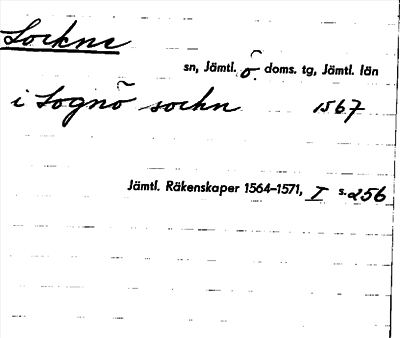 Lockne
sn, Jämtl. ö. doms. tg, Jämtl. län
i Lognö sochn 1567
Jämtl. Räkenskaper 1564–1571, I s. 256